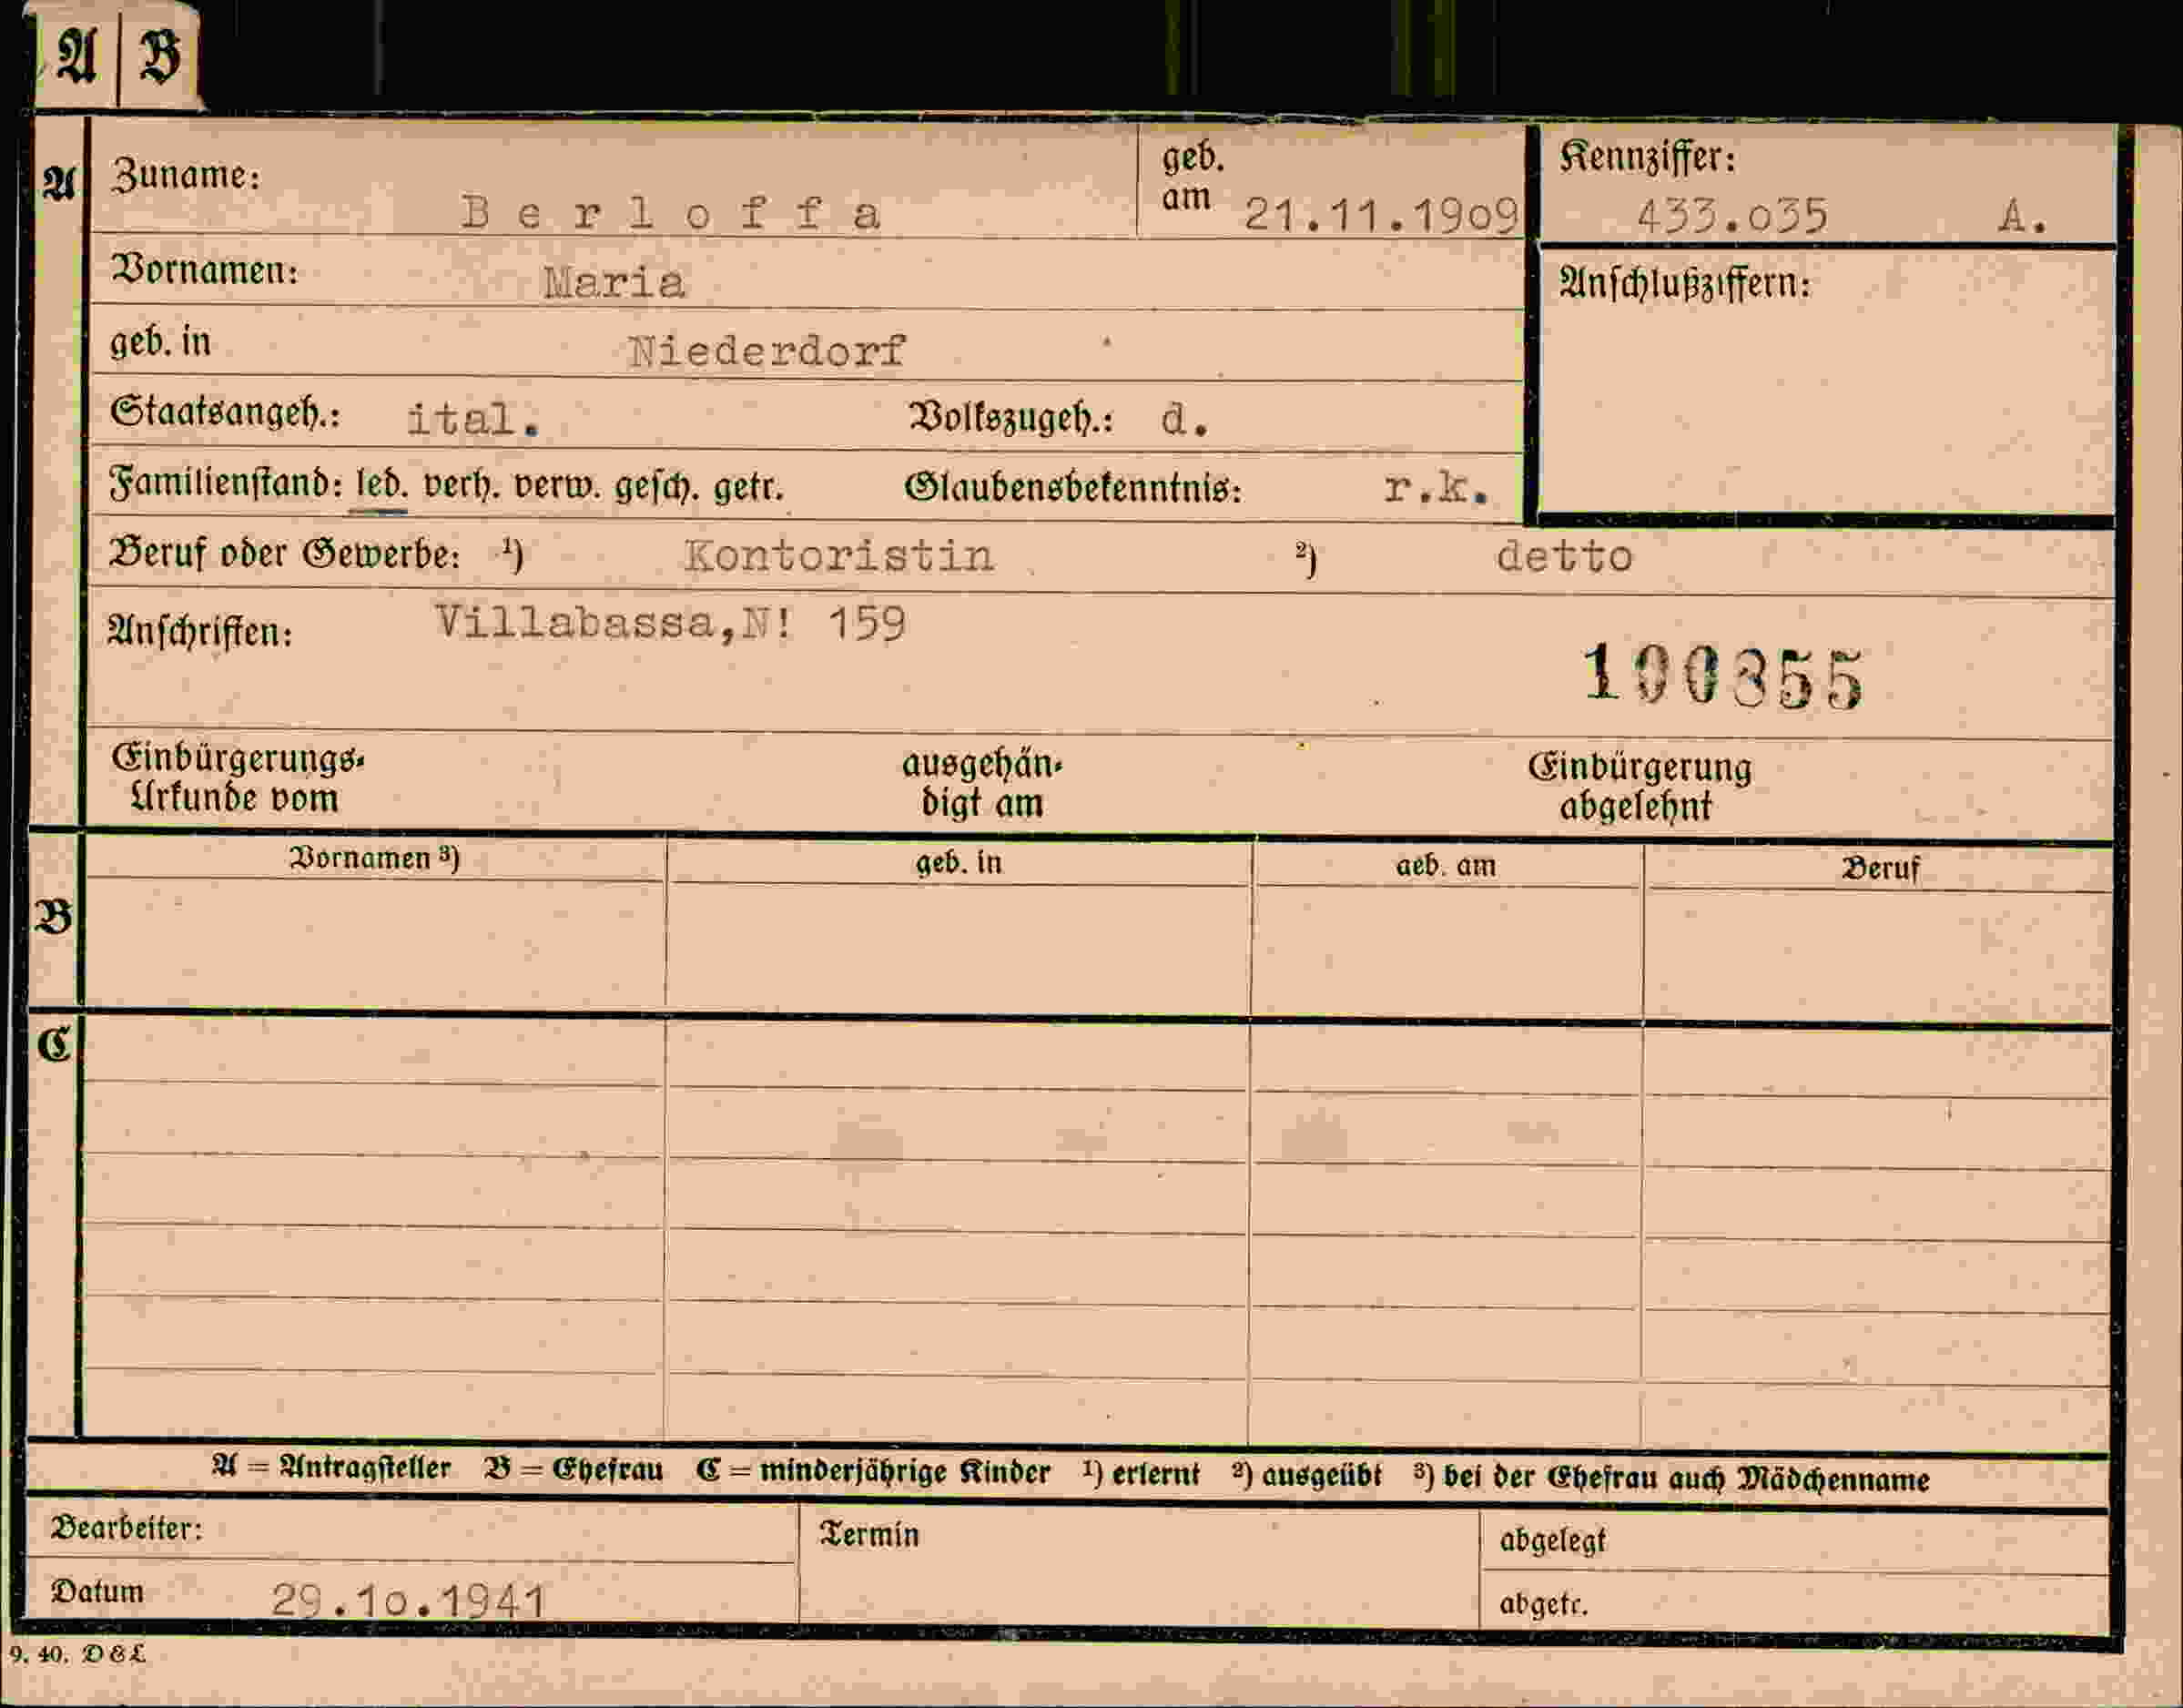 A | B
A
Zuname: Berloffa
geb. am 21.11.1909
Kennziffer: 433.035 A.
Vornamen: Maria
Anschlußziffern:
geb. in Niederdorf
Staatsangeh.: ital. Volkszugeh.: d.
Familienstand: led. verh. verw. gesch. getr. Glaubensbekenntnis: r.k.
Beruf oder Gewerbe: ¹) Kontoristin ²) detto
Anschriften: Villabassa,N! 159
100355
Einbürgerungs-Urkunde vom
ausgehändigt am
Einbürgerung abgelehnt
B
Vornamen ³) geb. in geb. am Beruf
C
A = Antragsteller B = Ehefrau C = minderjährige Kinder ¹) erlernt ²) ausgeübt ³) bei der Ehefrau auch Mädchenname
Bearbeiter:
Termin
abgelegt
Datum 29.10.1941
abgetr.
9. 40. D & L